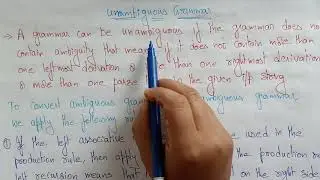 Unambiguous Grammar
→ A grammar can be unambiguous if the grammar does not
contain ambiguity that means if it does not contain more than
one leftmost derivation & more than one rightmost derivation
& more than one parse in the given I/P string
To convert ambiguous grammar unambiguous grammar
we apply the following
① If the left associative used in the
production rule, then apply the production rule
left recursion means that on the right side